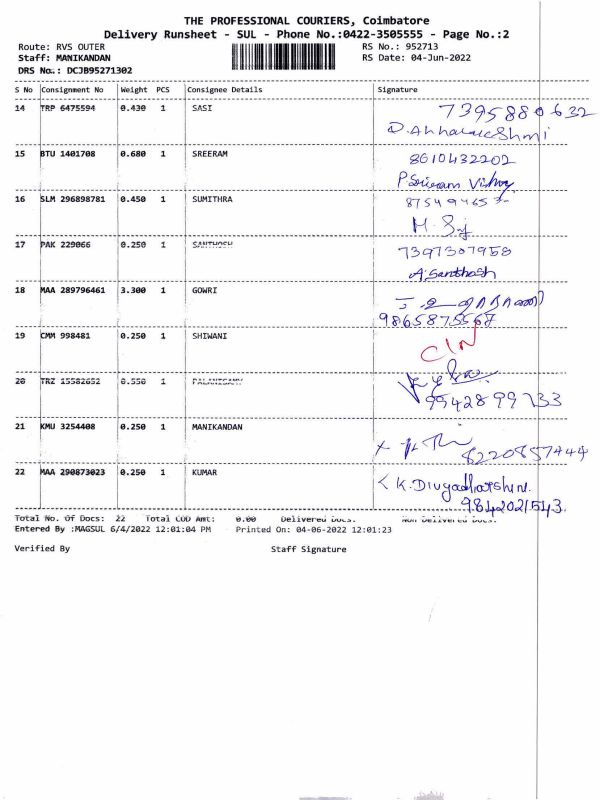 THE PROFESSIONAL COURIERS, Coimbatore
Delivery Runsheet - SUL - Phone No.:0422-3505555 - Page No.:2
Route: RVS OUTER RS No.: 952713
Staff: MANIKANDAN RS Date: 04-Jun-2022
DRS No.: DCJB95271302
S No Consignment No Weight PCS Consignee Details Signature
14 TRP 6475594 0.430 1 SASI 7395880632
15 BTU 1401708 0.680 1 SREERAM 8610432202
P Sriram Vishny
16 SLM 296898781 0.450 1 SUMITHRA
17 PAK 229066 0.250 1 SANTHOSH 7397307958
A. Santhosh
18 MAA 289796461 3.300 1 GOWRI
9865875567
19 CMM 998481 0.250 1 SHIWANI
C/N
20 TRZ 15582652 0.550 1 PALANISAMY
9942899733
21 KMU 3254408 0.250 1 MANIKANDAN
8220857444
22 MAA 290873023 0.250 1 KUMAR K. Divyadharshini
9842021543
Total No. Of Docs: 22 Total COD Amt: 0.00 Delivered Docs. Non Delivered Docs.
Entered By :MAGSUL 6/4/2022 12:01:04 PM Printed On: 04-06-2022 12:01:23
Verified By Staff Signature